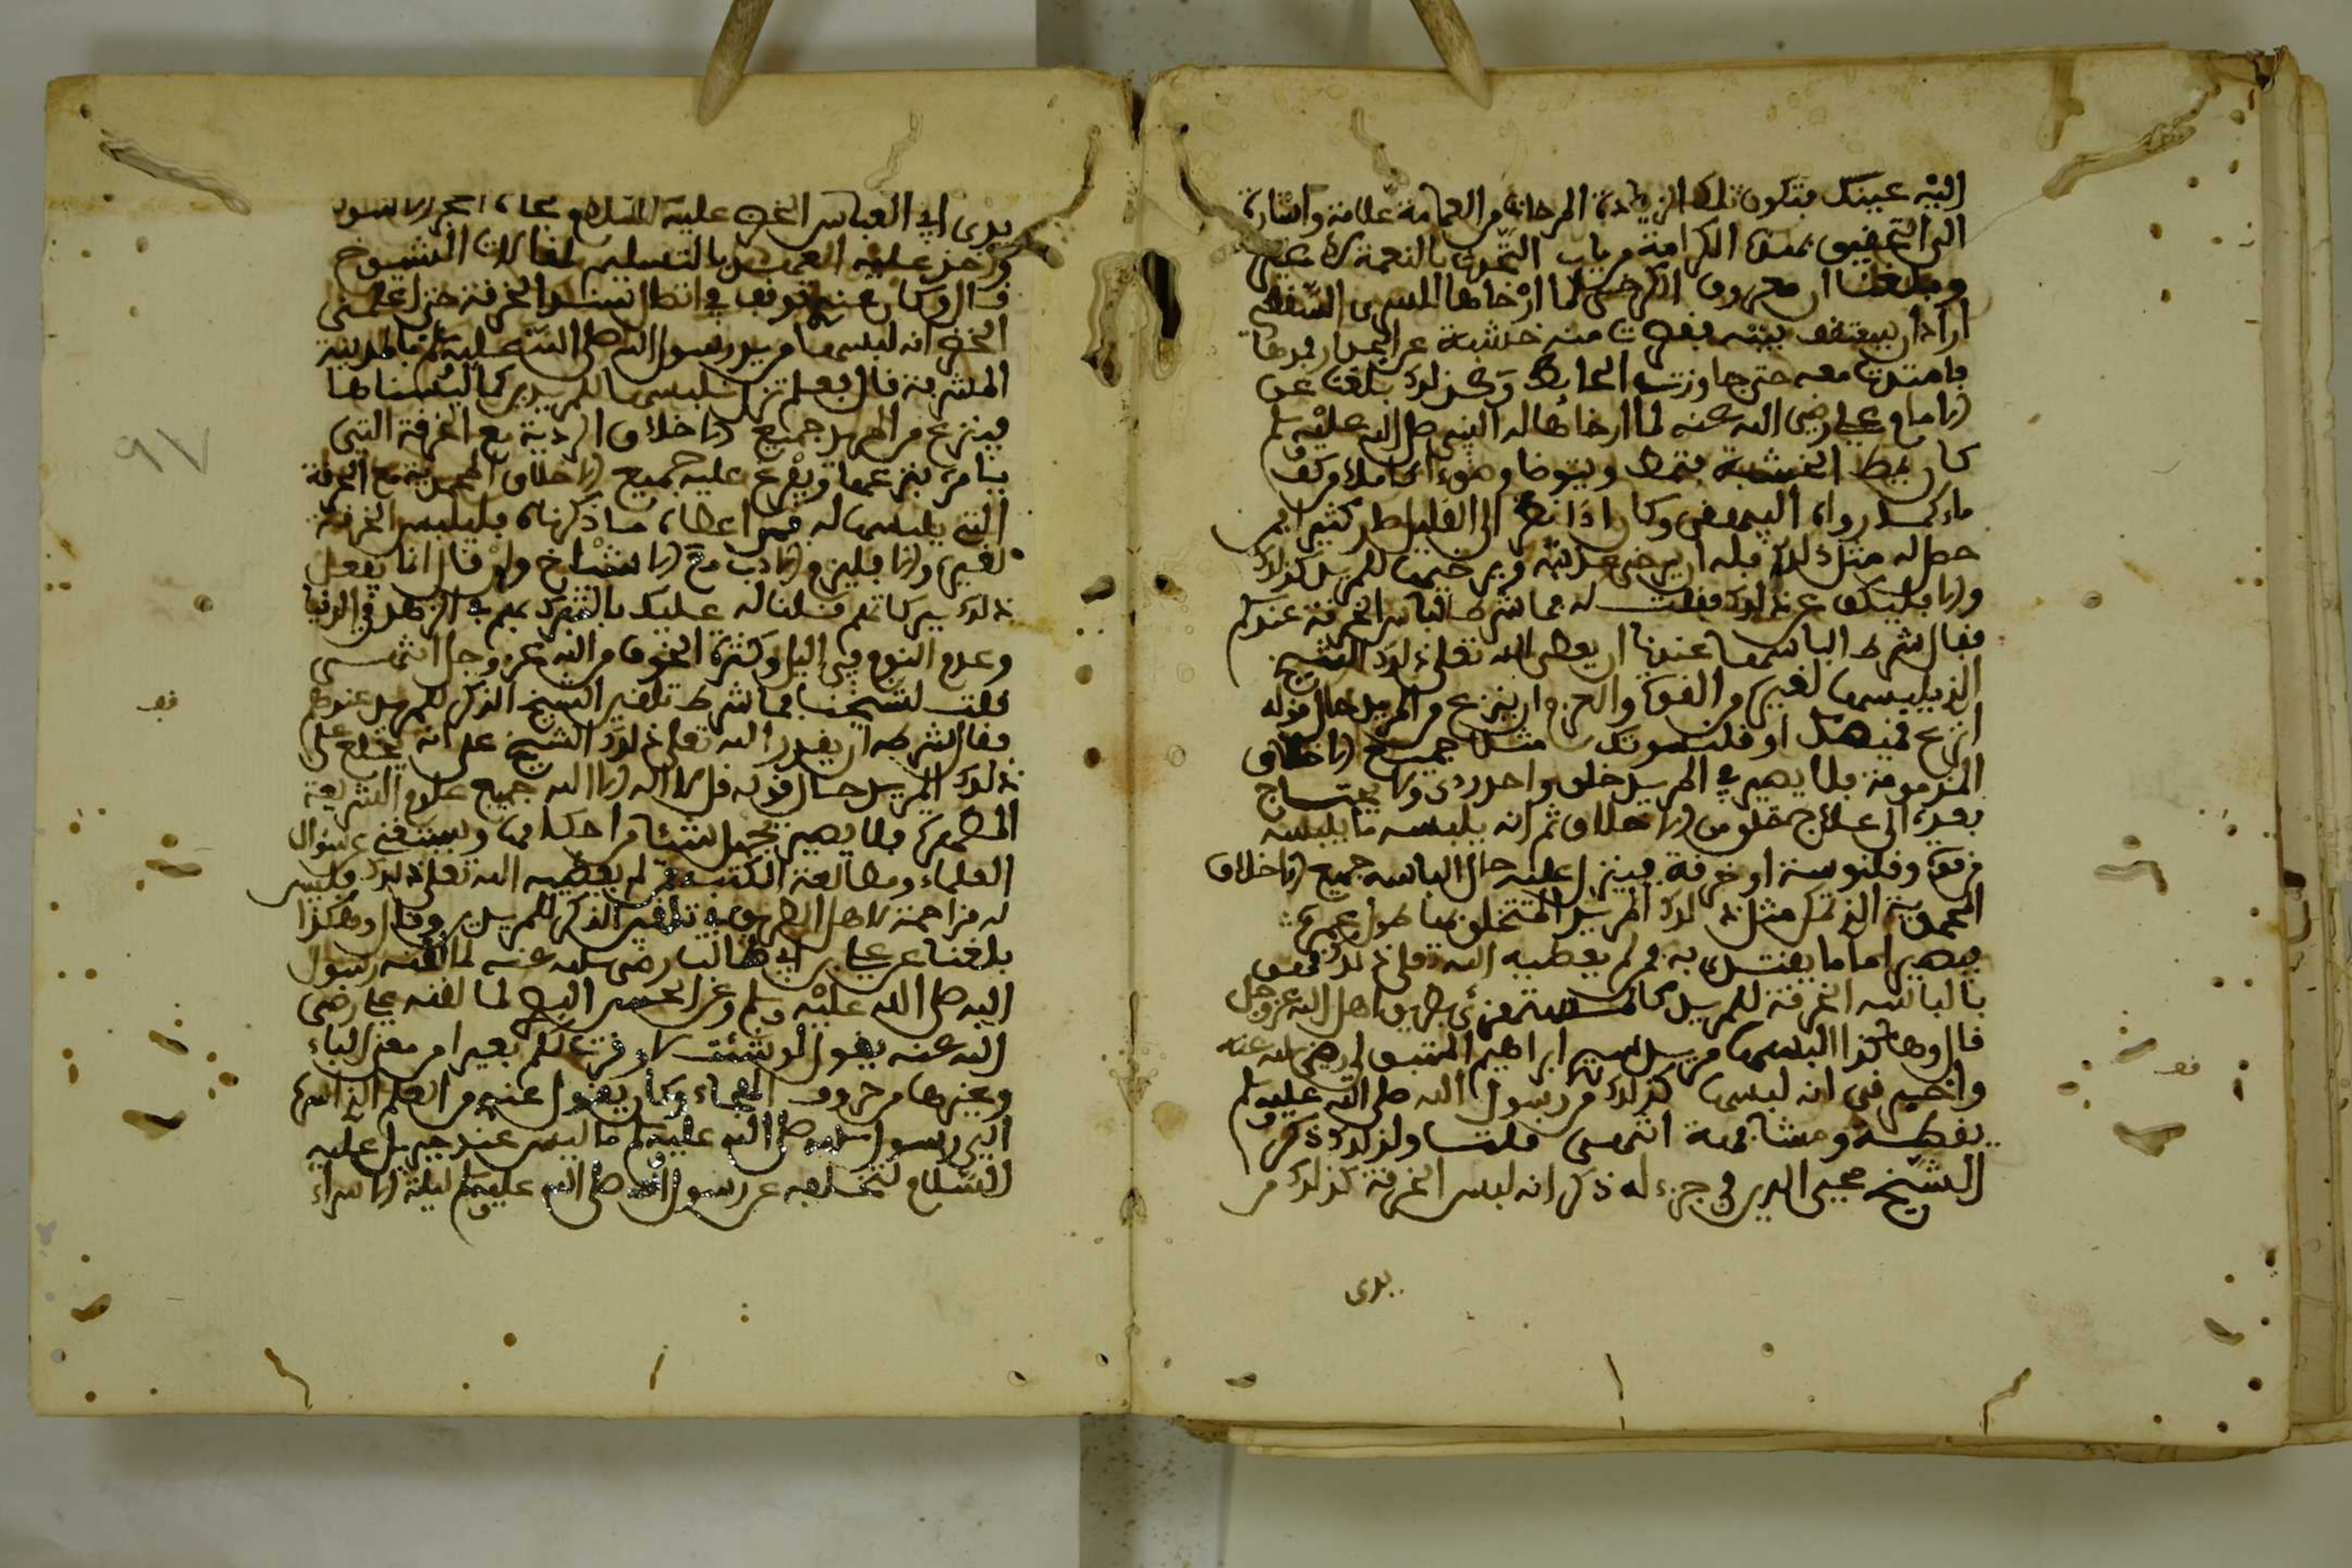 اليه عينك فتكون تلك الزيادة المرخاة من العمامة علامة واشارة
الى التحقيق بمقام الكرامة من باب التحدث بالنعمة لا غير
وبلغنا ان معروف الكرخي لما ارخاها للسري السقطي
اراد ان يسقف بيته فقصرت منه خشبة عن الجدار فمدها
فامتدت معه حتى جاوزت الحايط وكذلك بلغنا عن
الامام علي رضي الله عنه لما ارخاها له النبي صلى الله عليه وسلم
كان يمط الخشبة فتمط ويتوضا وضوءا كاملا من كف
ماء كما رواه البيهقي وكان اذا نظر الى القليل صار كثيرا فمن
حصل له مثل ذلك فله ان يرخي عذبته ويرخيها للمريد كذلك
والا فليكف عن ذلك فقلت له فما شرط الباس الخرقة عندكم
فقال شرط الباسها عندنا ان يعطي الله تعالى ذلك الشيخ
الذي يلبسها لغيره من القوة والعزم ان ينزع من المريد حال قوله
انزع قميصك او قلنسوتك مثلا جميع الاخلاق
المذمومة فلا يصير في المريد خلق واحد ردي ولا يحتاج
بعده الى علاج خلق من الاخلاق ثم انه يلبسه ما يلبسه
من ثوب وقلنوسة او خرقة فينزل عليه حال الباسه جميع الاخلاق
المحمدية الذي لمثل ذلك المريد التخلق بها طول عمره
فيصير اماما يقتدى به فمن لم يعطيه الله تعالى ذلك فهو
بالباسه الخرقة للمريد كالمستهزئ بطريق اهل الله عز وجل
قال وهكذا البسها من يد سيدي ابراهيم المتبولي رضي الله عنه
واخبرني انه لبسها كذلك من رسول الله صلى الله عليه وسلم
يقظة ومشافهة انتهى قلت ولذلك ذكر
الشيخ محيي الدين في جزء له ذكر انه لبس الخرقة كذلك من
يدى
يدى ابي العباس الخضر عليه السلام تجاه الحجر الاسود
واخذ عليه العهد بالتسليم لمقالات الشيوخ
قال وكان عنده توقف في اتصال سند الخرقة حتى اعلمني
الخضر انه لبسها من يد رسول الله صلى الله عليه وسلم بالمدينة
المشرفة قال فعلم نزل نلبسها للمريدين كما البسناها
فينزع من المريد جميع الاخلاق الردية مع الخرقة التي
يامره بنزعها ويفرغ عليه جميع الاخلاق المحمدية مع الخرقة
التي يلبسها له فمن اعطاه ما ذكرناه فليلبس الخرقة
لغيره والا فليلزم الادب مع الاشياخ وان قال انا نفعل
ذلك تبركا بهم قلنا له عليك بالتبرك بهم في الزهد في الدنيا
وعدم النوم في اليل وكثرة الخوف من الله عز وجل انتهى
فقلت لشيخنا فما شرط تلقين الشيخ الذكر للمريد عندكم
فقال شرطه ان يقدر الله تعالى ذلك الشيخ على انه يخلع على
ذلك المريد حال قوله قل لا اله الا الله جميع علوم الشريعة
المطهرة فلا يصير يجهل شيئا من احكامها ويستغني عن سوال
العلماء ومطالعة الكتب ومن لم يعطيه الله تعالى ذلك فليس
له مزاحمة لاهل الطريق في تلقين الذكر للمريدين وقال وهكذا
بلغنا عن علي بن ابي طالب رضي الله عنه لما لقنه رسول
الله صلى الله عليه وسلم وعن الحسن البصري لما لقنه علي رضي
الله عنه يقول لو شئت لاوقرت لكم بعيرا من معنى الباء
وغيرها من حروف الهجاء وكان يقول عندي من العلم الذي اسره
الي رسول الله صلى الله عليه وسلم ما ليس عند جبريل عليه
السلام لتخلفه عن رسول الله صلى الله عليه وسلم ليلة الاسراء
٩٧
قف
قف